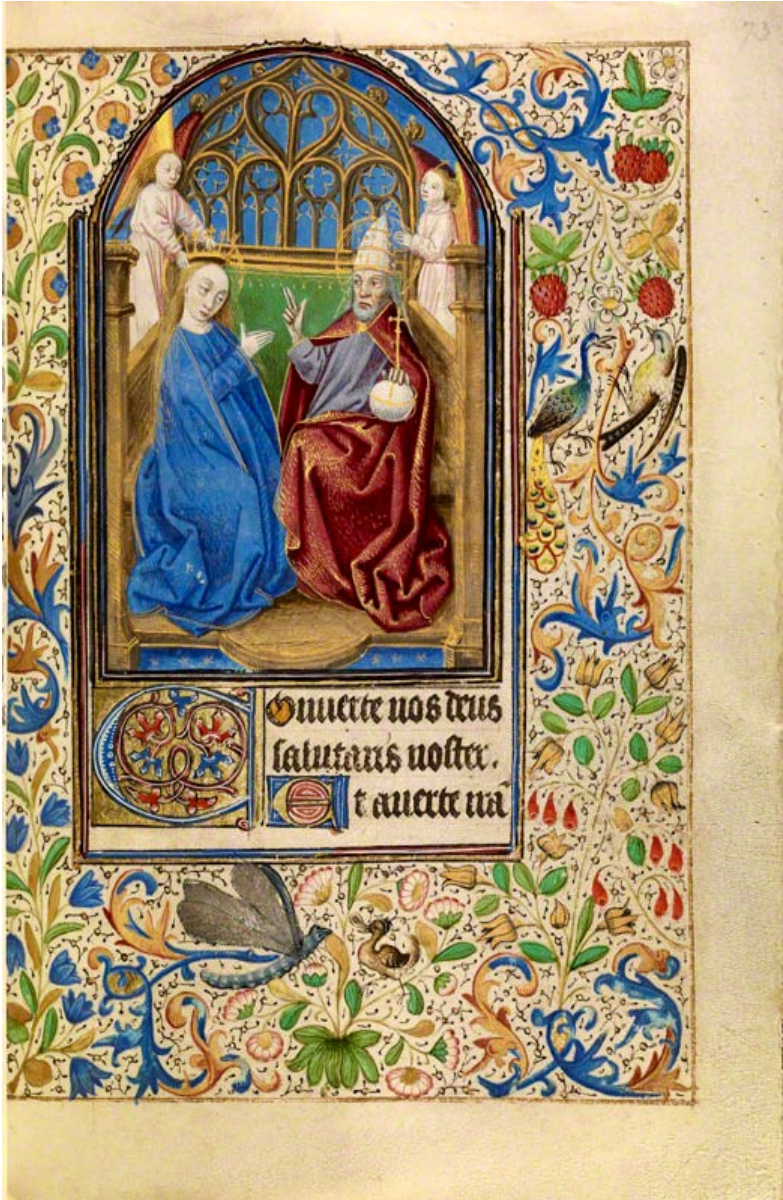 73
Conuerte nos deus
salutaris noster.
Et auerte irã